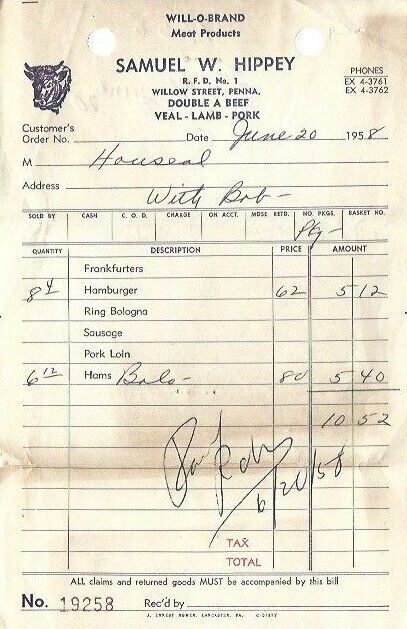 WILL-O-BRAND
Meat Products
SAMUEL W. HIPPEY
R. F. D. No. 1
WILLOW STREET, PENNA.
DOUBLE A BEEF
VEAL - LAMB - PORK
PHONES
EX 4-3761
EX 4-3762
Customer's
Order No. Date June 20 1958
M Houseal
Address With Bob -
SOLD BY CASH C. O. D. CHARGE ON ACCT. MDSE RETD. NO. PKGS. BASKET NO.
Pkg -
QUANTITY DESCRIPTION PRICE AMOUNT
Frankfurters
8 4 Hamburger 62 5 12
Ring Bologna
Sausage
Pork Loin
6 12 Hams 80 5 40
10 52
6/20/58
TAX
TOTAL
ALL claims and returned goods MUST be accompanied by this bill
No. 19258 Rec'd by
J. ERNEST ROWER, LANCASTER, PA.